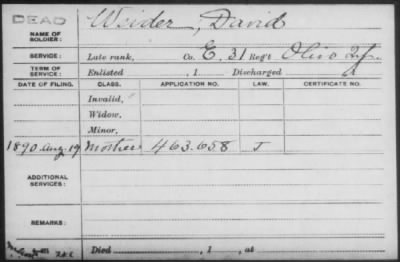 DEAD
NAME OF SOLDIER: Weider, David
SERVICE: Late rank, Co. E, 31 Reg't Ohio Inf.
TERM OF SERVICE: Enlisted , 1 Discharged , 1
DATE OF FILING. CLASS. APPLICATION NO. LAW. CERTIFICATE NO.
Invalid,
Widow,
Minor,
1890 Aug. 19 Mother 463.658 J
ADDITIONAL SERVICES:
REMARKS:
Died , 1 , at